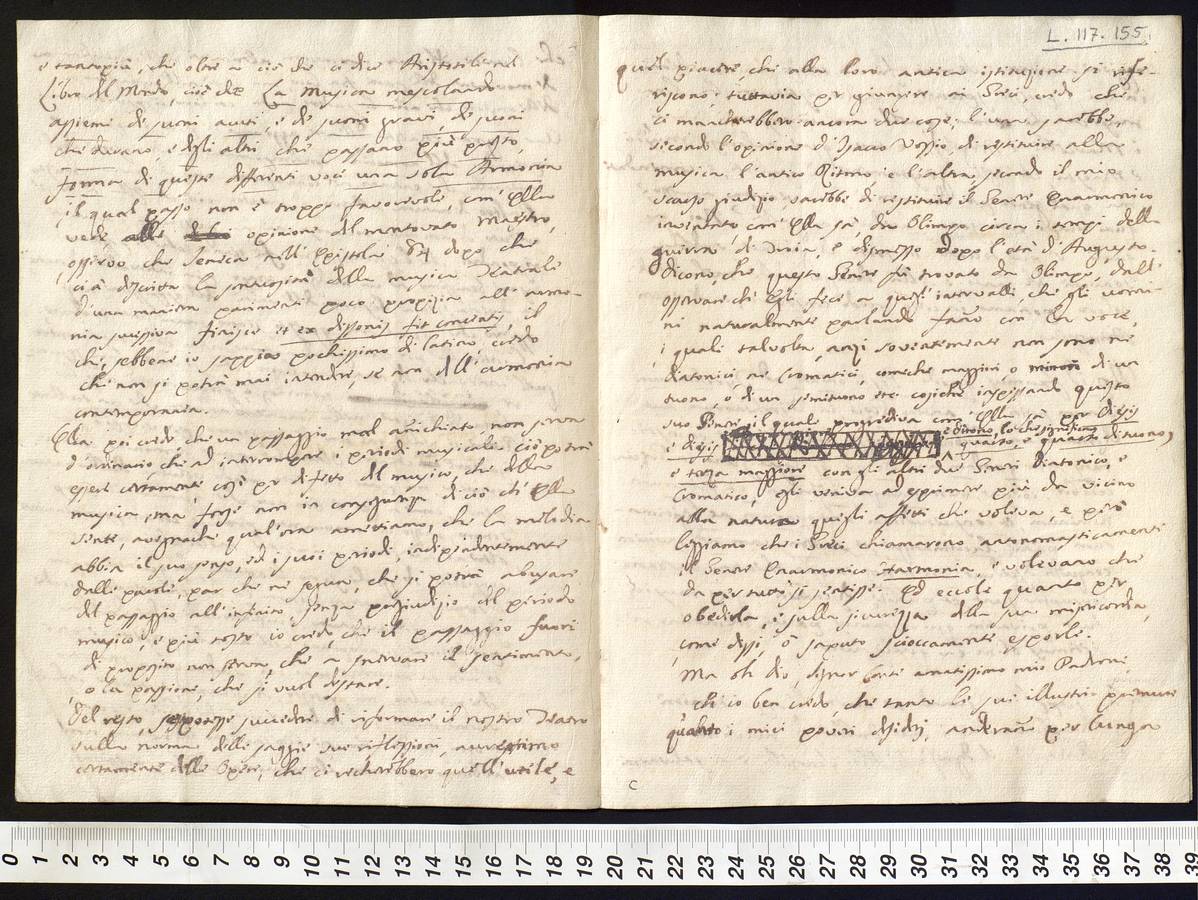 e tantopiù, che oltre a ciò che ci dice Aristotile nel
Libro del Mondo, cioè che La Musica mescolando
assieme de suoni acuti e de suoni gravi, de suoni
che durano, e degli altri che passano più presto,
forma di queste differenti voci una sola Armonia
il qual passo non è troppo favorevole, com' Ella
vede alla opinione del mentovato Maestro,
osservo che Seneca nell' Epistola 84 dopo che
ci à descritta la della musica Teatrale
d'una maniera parimenti poco propizia all' armo-
nia successiva finisce et ex dissonis fit concentus, il
che, sebbene io sappia pochissimo di latino, credo
che non si potrà mai intendere, se non dell' armonia
contemporanea.
Ella poi crede che un passaggio mal nicchiato, non serva
d'ordinario che ad interrompere i periodi musicali. Ciò potrà
essere certamente così per difetto del musico, che della
musica, ma forse non in conseguenza di ciò ch' Ella
sente, avegnache qual'ora ammettiamo, che la melodia
abbia il suo senso, ed i suoi periodi, independentemente
dalle parole, par che ne segua, che si potrà abusare
del passaggio all' infinito, senza pregiudizio del periodo
musico; e più tosto io credo, che il passaggio fuori
di proposito non serva, che a snervare il sentimento,
o la passione, che si vuol destare.
Del resto, se potesse succedere di riformare il nostro Teatro
sulla norma delle saggie sue riflessioni, avressimo
certamente delle Opere, che ci recherebbero quell'utile, e
L. 117. 155
quel piacere, che alla loro antica istituzione si rife-
riscono; tuttavia per giungere ai Greci, credo che
ci mancherebbero ancora due cose; l'una sarebbe,
secondo l'opinione d'Isacco Vossio, di restituire alla
musica l'antico Ritmo; e l'altra, secondo il mio
scarso giudizio sarebbe di restituire il Genere Enarmonico
inventato com' Ella sà, da Olimpo circa i tempi della
guerra di Troia, e dismesso dopo l'età d'Augusto.
Dicono, che questo Genere fù trovato da Olimpo, dall'
osservare ch' Egli fece a quegl' intervalli, che gli uomi-
ni naturalmente parlando fanno con la voce,
i quali talvolta, anzi soventemente non sono ne
diatonici ne Cromatici, comeche maggiori, o minori di un
tuono, o di un semituono etc. cosiche inspessando questo
suo Genere il quale procedeva com' Ella sà per diesis
e diesis e ditono, lo che significa
quarto, e quarto di tuono,
e terza maggiore con gli altri due Generi Diatonico, e
Cromatico, gli veniva ad esprimere più da vicino
alla natura quegli affetti che voleva, e però
leggiamo che i Greci chiamarono antonomasticamente
il Genere Enarmonico Harmonia, e volevano che
da per tutto si sentisse. Ed eccole quanto per
obedirla, e sulla sicurezza della sua misericordia,
come dissi, ò saputo scioccamente esporle.
Ma oh dio, Signor Conte amatissimo mio Padrone,
ch'io ben credo, che tanto le sue illustri premure
quanto i miei poveri desiderj, anderanno per lunga
C
0 1 2 3 4 5 6 7 8 9 10 11 12 13 14 15 16 17 18 19 20 21 22 23 24 25 26 27 28 29 30 31 32 33 34 35 36 37 38 39